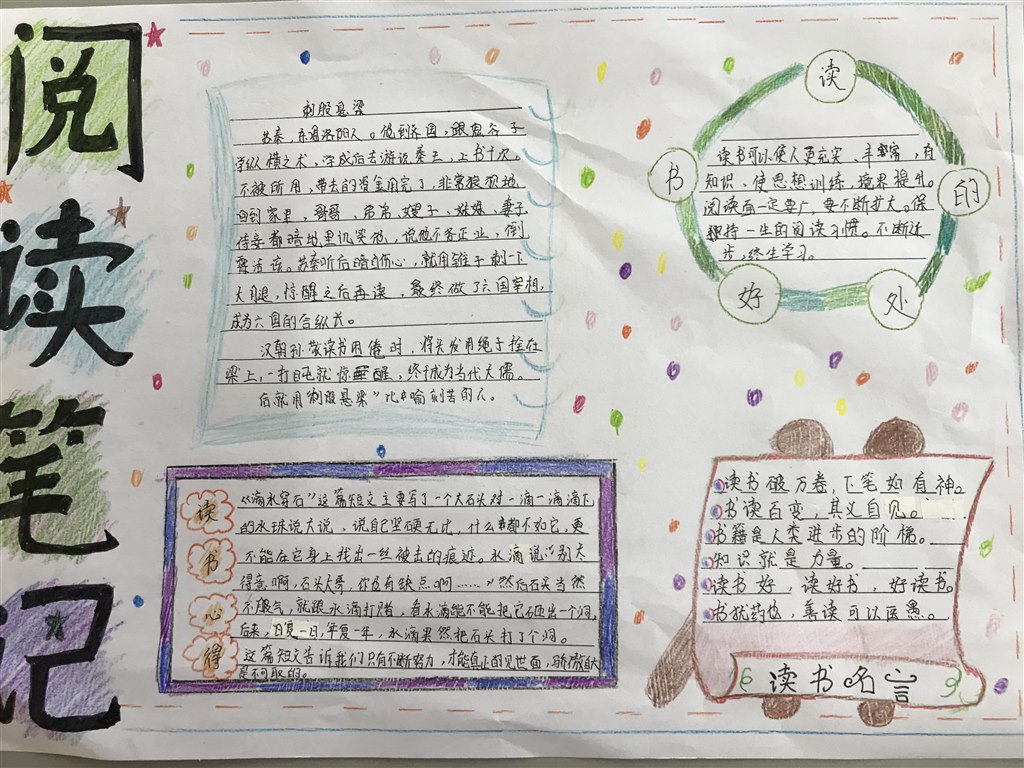 阅读笔记
刺股悬梁
苏秦，东周洛阳人。他到齐国，跟鬼谷子
学纵横之术，学成后去游说秦王，上书十次。
不被所用，带去的资金用完了，非常狼狈地
回到家里，哥哥、弟弟、嫂子、妹妹、妻子
侍妾都暗地里讥笑他，说他不务正业，倒
霉活该。苏秦听后暗自伤心，就用锥子刺一下
大腿，惊醒之后再读，最终做了六国宰相，
成为六国的合纵长。
汉朝孙敬读书困倦时，将头发用绳子拴在
梁上，一打盹就惊醒，终于成为当代大儒。
后就用“刺股悬梁”比喻刻苦的人。
读书的好处
读书可以使人更充实、丰富，有
知识、使思想训练，境界提升。
阅读面一定要广要不断扩大。保
持一生的阅读习惯。不断进
步，终生学习。
读书心得
《滴水穿石》这篇短文主要写了一个大石头对一滴一滴滴下
的水珠说大说，说自己坚硬无比，什么都不如它，更
不能在它身上找出一丝被击的痕迹。水滴说：“别太
得意啊，石头大哥，你也有缺点啊……”然后石头当然
不服气，就跟水滴打赌，看水滴能不能把它砸出一个洞，
后来，日复一日，年复一年，水滴果然把石头打了个洞。
这篇短文告诉我们只有不断努力，才能真正的见世面，骄傲自大
是不可取的。
读书破万卷，下笔如有神。
书读百变，其义自见。
书籍是人类进步的阶梯。
知识就是力量。
读书好，读好书，好读书。
书犹药也，善读可以医愚。
读书名言